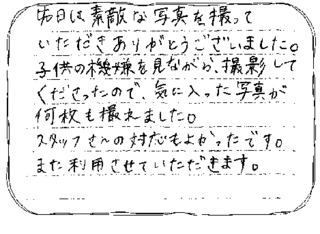 先日は素敵な写真を撮って
いただきありがとうございました。
子供の機嫌を見ながら、撮影して
くださったので、気に入った写真が
何枚も撮れました。
スタッフさんの対応もよかったです。
また利用させていただきます。